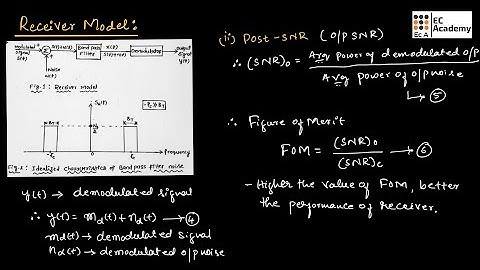 Receiver Model:
modulated
Signal
S(t)
Σ
Band pass
Filter
x(t)
Demodulator
output
Signal
y(t)
Noise
w(t)
Fig.1: Receiver model
SN(f)
-fc
0
fc
frequency
Fig.2: Idealized characteristics of Bandpass filter noise
y(t) → demodulated signal
∴ y(t) = md(t) + nd(t) → ④
md(t) → demodulated signal
nd(t) → demodulated o/p noise
(ii) Post-SNR (O/P SNR)
∴ (SNR)o = Avg power of demodulated O/P
Avg power of o/p noise
→ ⑤
∴ Figure of Merit
FOM = (SNR)o
(SNR)c → ⑥
- Higher the value of FOM, better
the performance of receiver.
EC
Academy
EcA